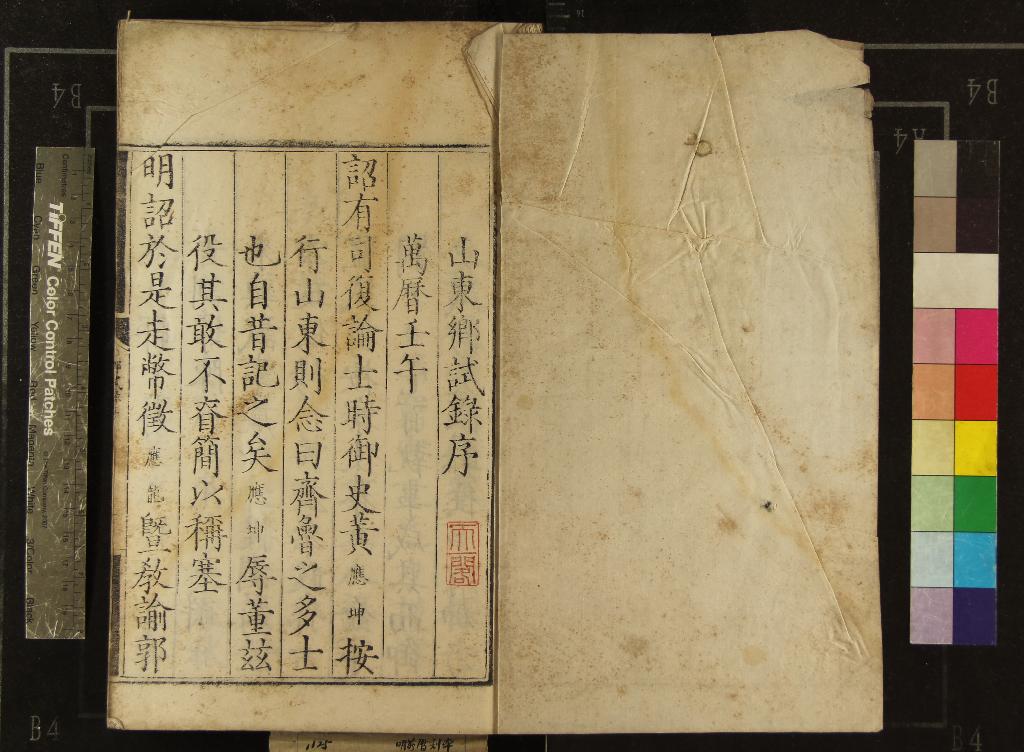 山東鄉試錄序
天一閣
萬曆壬午
詔有司復論士時御史黃應坤按
行山東則念曰齊魯之多士
也自昔記之矣應坤辱董茲
役其敢不耆簡以稱塞
明詔於是走幣徵應龍曁敎諭郭
B4
B4
A4
B4
B4
TIFFEN Color Control Patches
Centimetres
Blue
Cyan
Green
Yellow
Red
Magenta
White
3/Color
Black